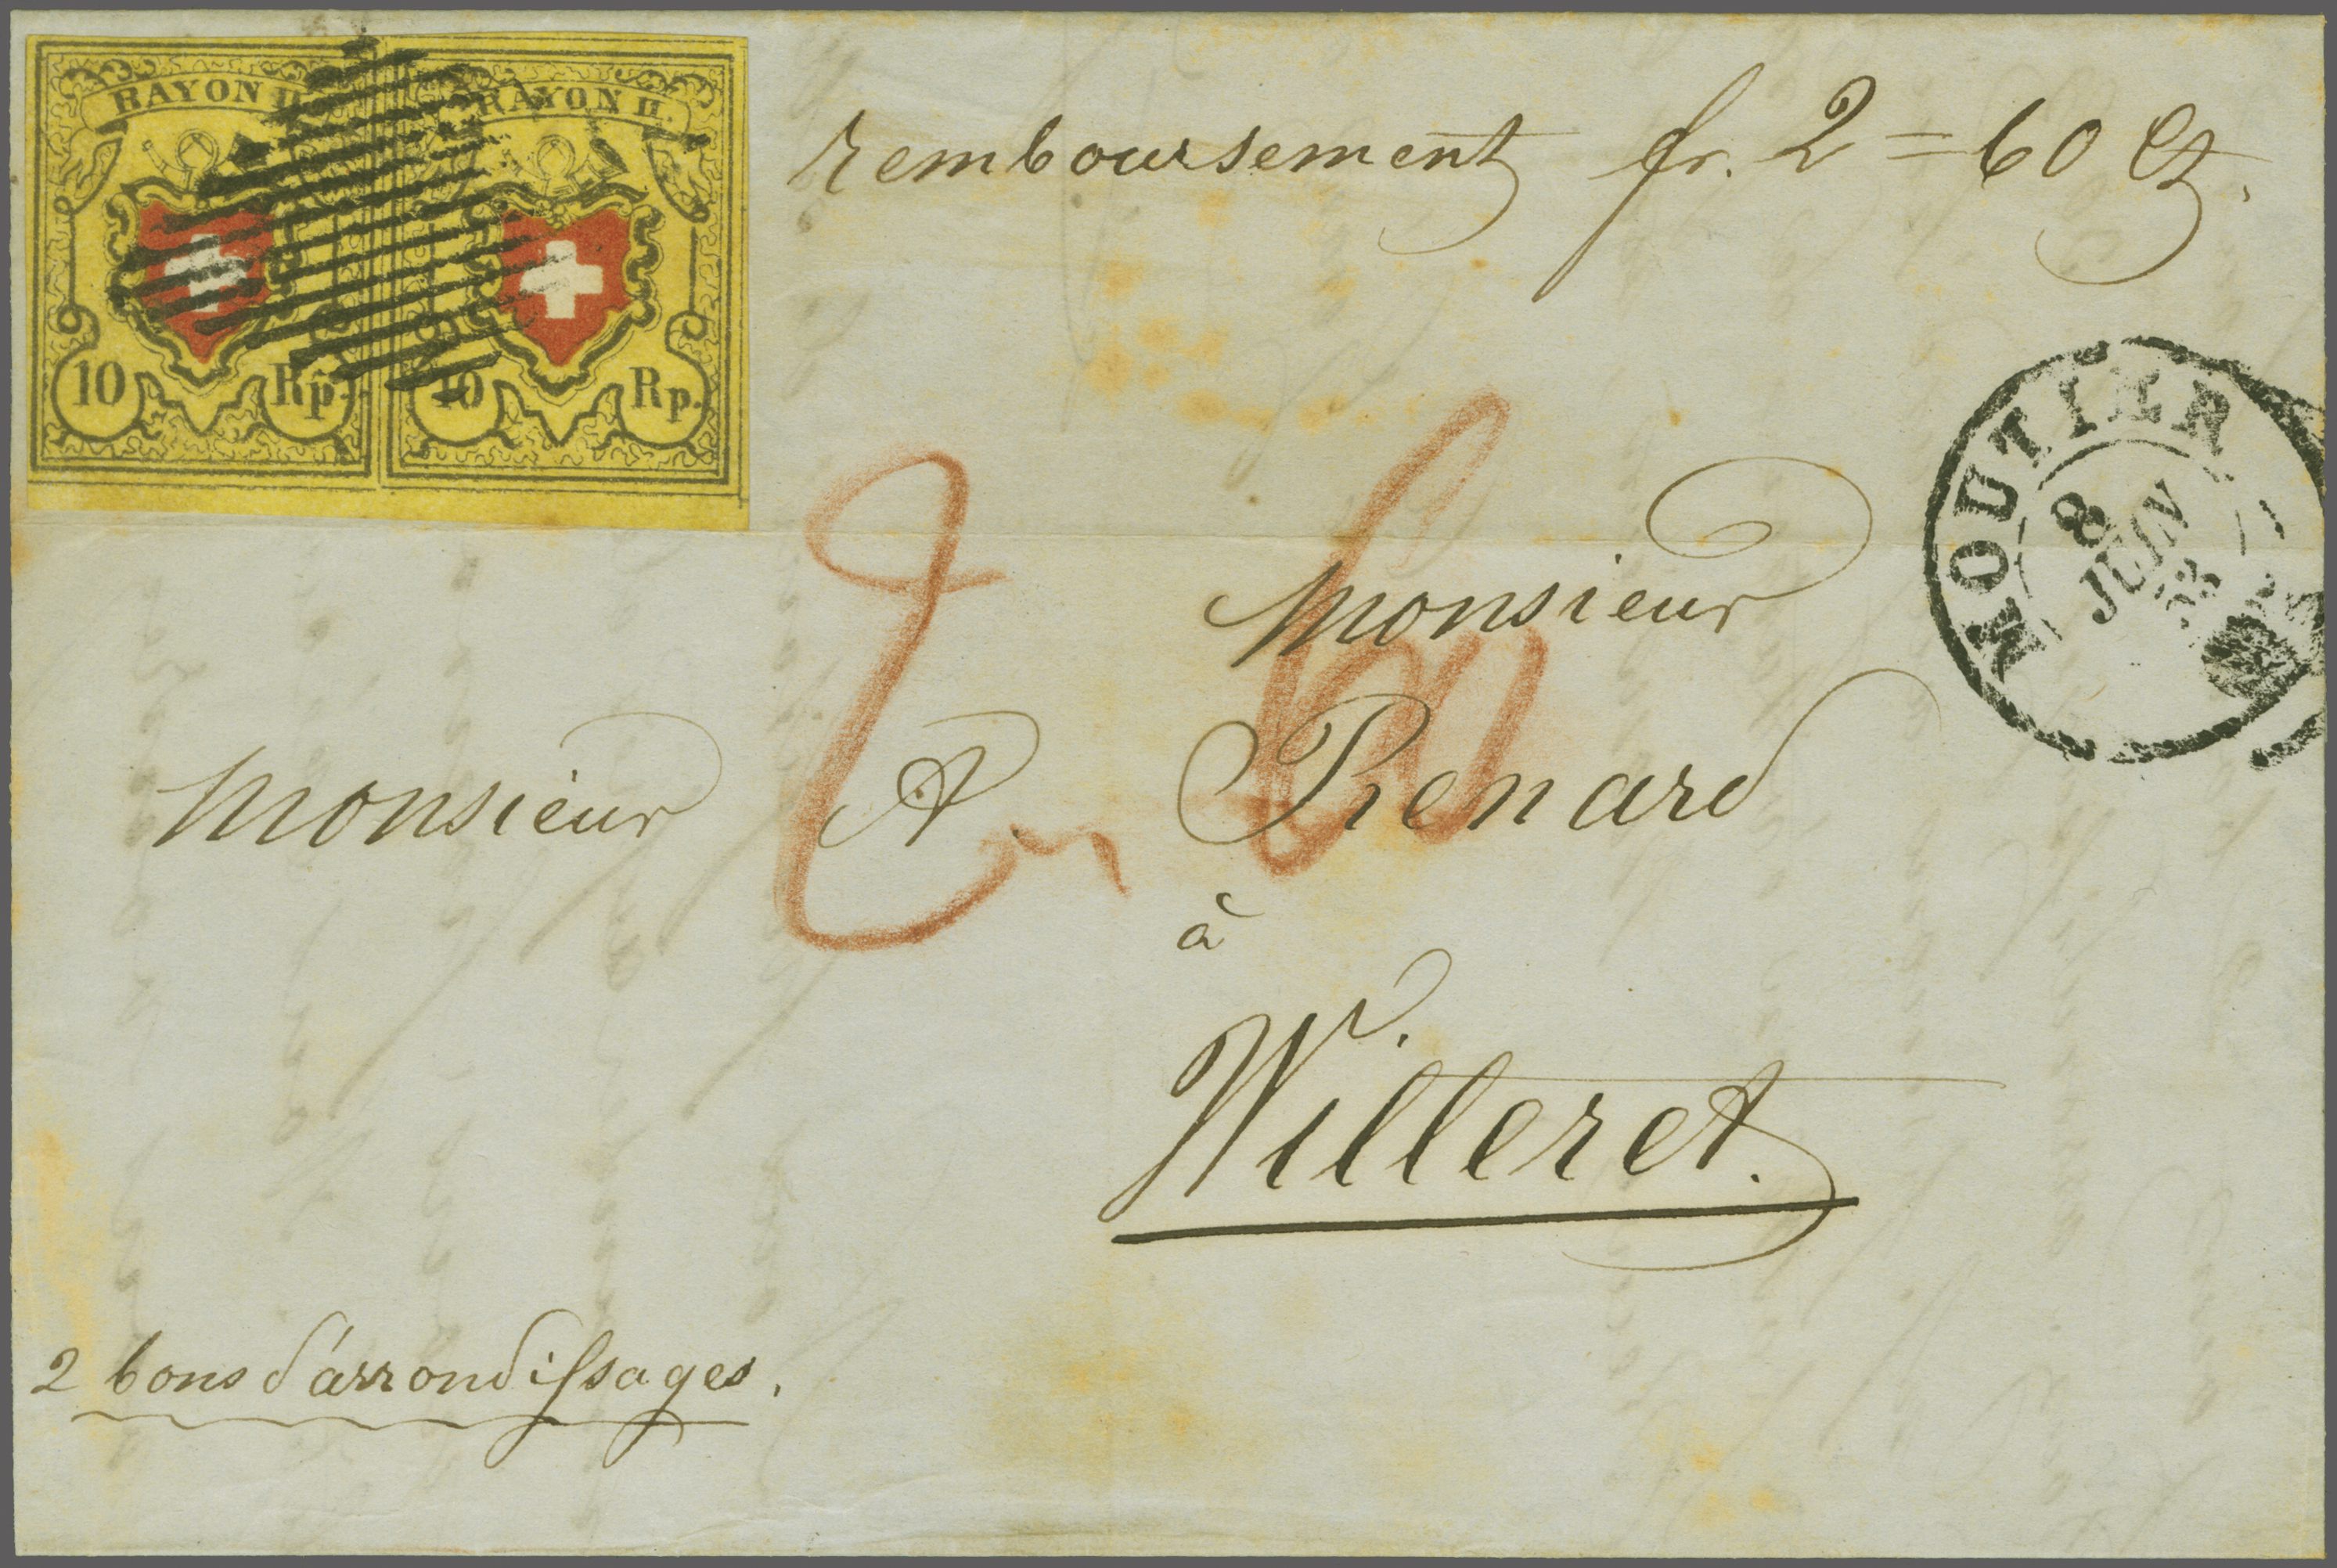 RAYON II. RAYON II.
10 Rp. 10 Rp.
remboursement fr. 2 = 60 Ct.
MOUTIER
8
JUIN
2 60
Monsieur
Monsieur A Renard
à
Willeret.
2 bons d'arrondissages.